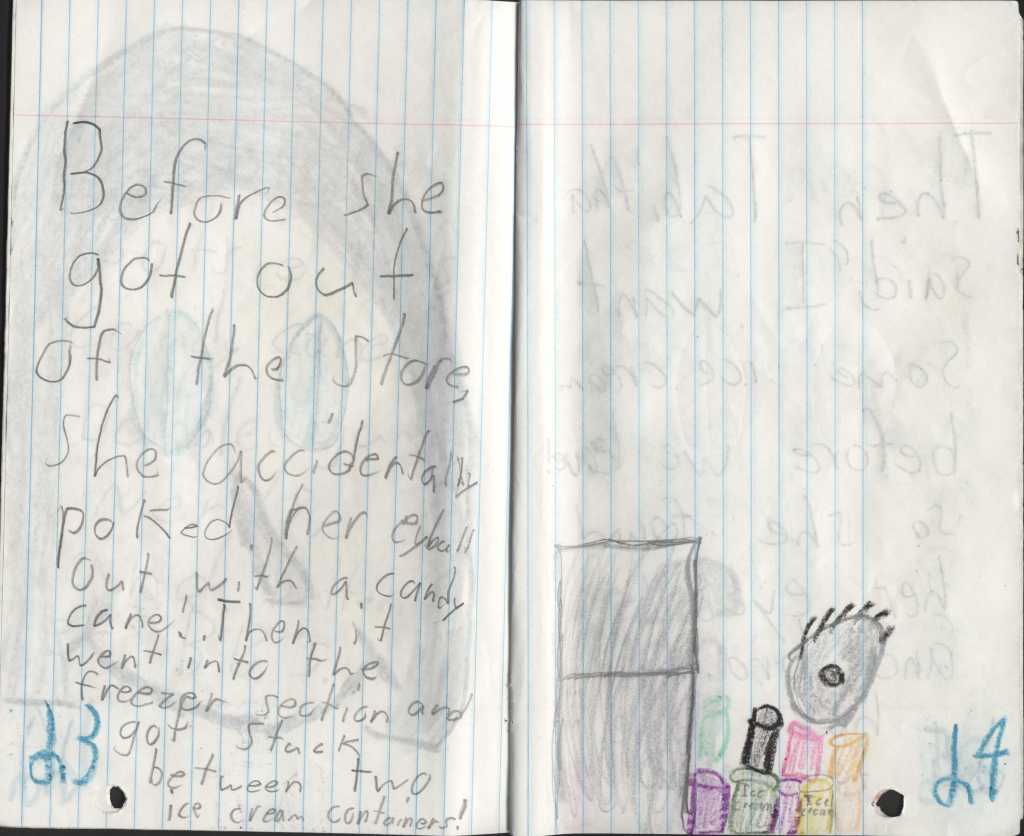 Before she
got out
of the store,
she accidentally
poked her eyball
out with a candy
cane!..Then it
went into the
freezer section and
got stuck
between two
ice cream containers!
23
Ice
Cream
Ice
cream
24